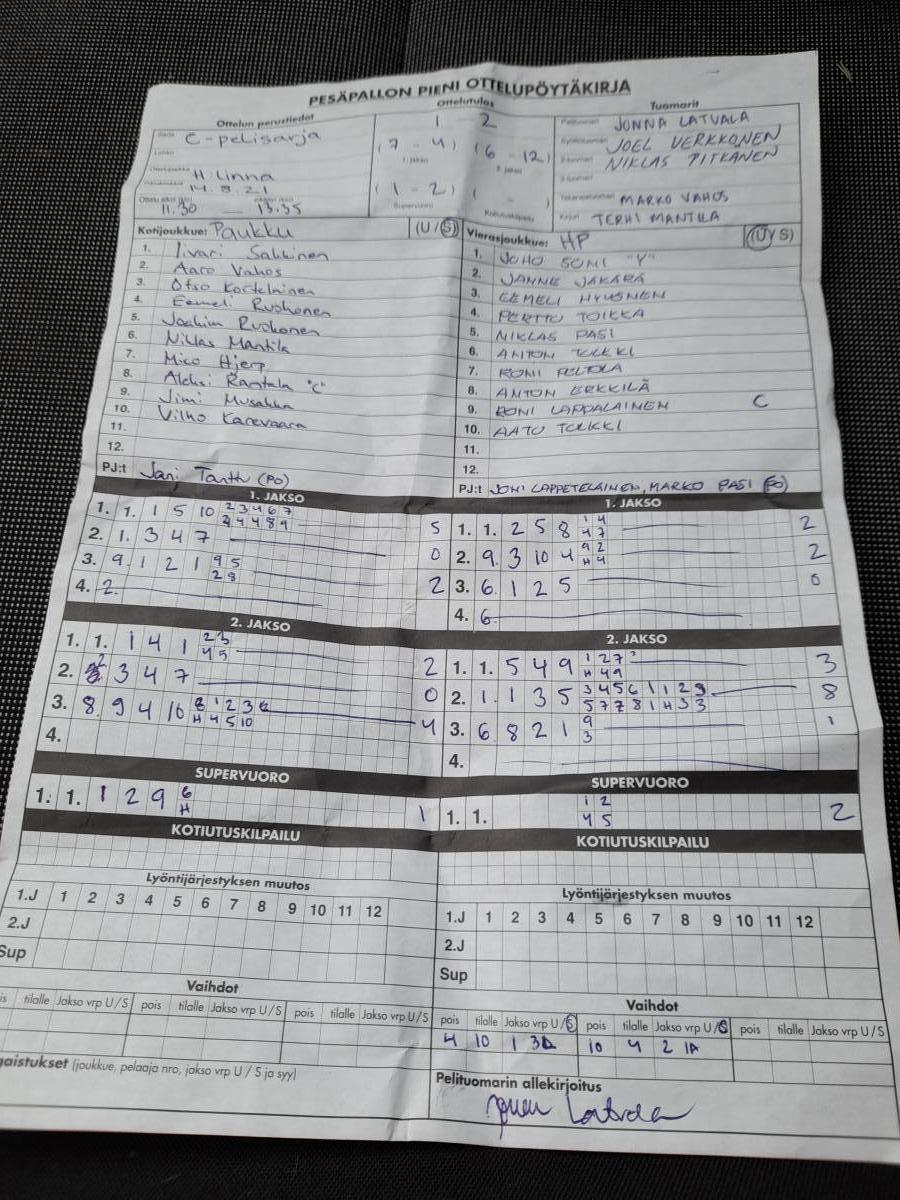 PESÄPALLON PIENI OTTELUPÖYTÄKIRJA
Ottelun perustiedot
Ottelutulos
Tuomarit
E-pelisarja
H linna
14.8.21
11.30 — 13.35
1 - 2
(7 - 4) (6 - 12)
1. jakso
(1 - 2) ( - )
Supervuoro Kotiutuskilpailu
JONNA LATVALA
JOEL VERKKONEN
NIKLAS PITKÄNEN
MARKO VAHOS
TERHI MANTILA
Kotijoukkue: Paukku (U / S)
1. Iivari Sallinen
2. Aaro Vahos
3. Otso Kostelainen
4. Eemeli Ruohonen
5. Joakim Ruohonen
6. Niklas Mantila
7. Mico Hjerp
8. Aleksi Rantala "C"
9. Jimi Musakka
10. Vilho Karevaara
11.
12.
PJ:t Jani Tanttu (PO)
Vierasjoukkue: HP (U / S)
1. JOHO SONI "Y"
2. JANNE JAKARÄ
3. EEMELI HYVÖNEN
4. PERTTU TOIKKA
5. NIKLAS PASI
6. ANTON TOLKKI
7. RONI PELTOLA
8. ANTON ERKKILÄ
9. RONI LAPPALAINEN C
10. AATU TOLKKI
11.
12.
PJ:t JONI LAPPETELÄINEN, MARKO PASI PO
1. JAKSO
1. 1. 1 5 10 2 3 4 6 7 5
2 4 4 8 9
2. 1. 3 4 7 0
3. 9. 1 2 1 9 5 2
2 8
4. 2.
1. JAKSO
1. 1. 2 5 8 1 4 2
4 7
2. 9. 3 10 4 9 2 2
H 4
3. 6. 1 2 5 0
4. 6.
2. JAKSO
1. 1. 1 4 1 2 3 2
4 5
2. 2 3 4 7 0
3. 8. 9 4 10 8 1 2 3 4
H 4 5 10
4.
2. JAKSO
1. 1. 5 4 9 1 2 7 3
H 4 9
2. 1. 1 3 5 3 4 5 6 1 1 2 3 8
5 7 7 8 1 H 3 3
3. 6 8 2 1 9 1
3
4.
SUPERVUORO
1. 1. 1 2 9 6 1
H
SUPERVUORO
1. 1. 1 2 2
4 5
KOTIUTUSKILPAILU
KOTIUTUSKILPAILU
Lyöntijärjestyksen muutos
1.J 1 2 3 4 5 6 7 8 9 10 11 12
2.J
Sup
Lyöntijärjestyksen muutos
1.J 1 2 3 4 5 6 7 8 9 10 11 12
2.J
Sup
Vaihdot
is tilalle Jakso vrp U / S pois tilalle Jakso vrp U / S pois tilalle Jakso vrp U / S
Vaihdot
pois tilalle Jakso vrp U / S pois tilalle Jakso vrp U / S pois tilalle Jakso vrp U / S
4 10 1 3A 10 4 2 1A
gaistukset (joukkue, pelaaja nro, jakso vrp U / S ja syy)
Pelituomarin allekirjoitus